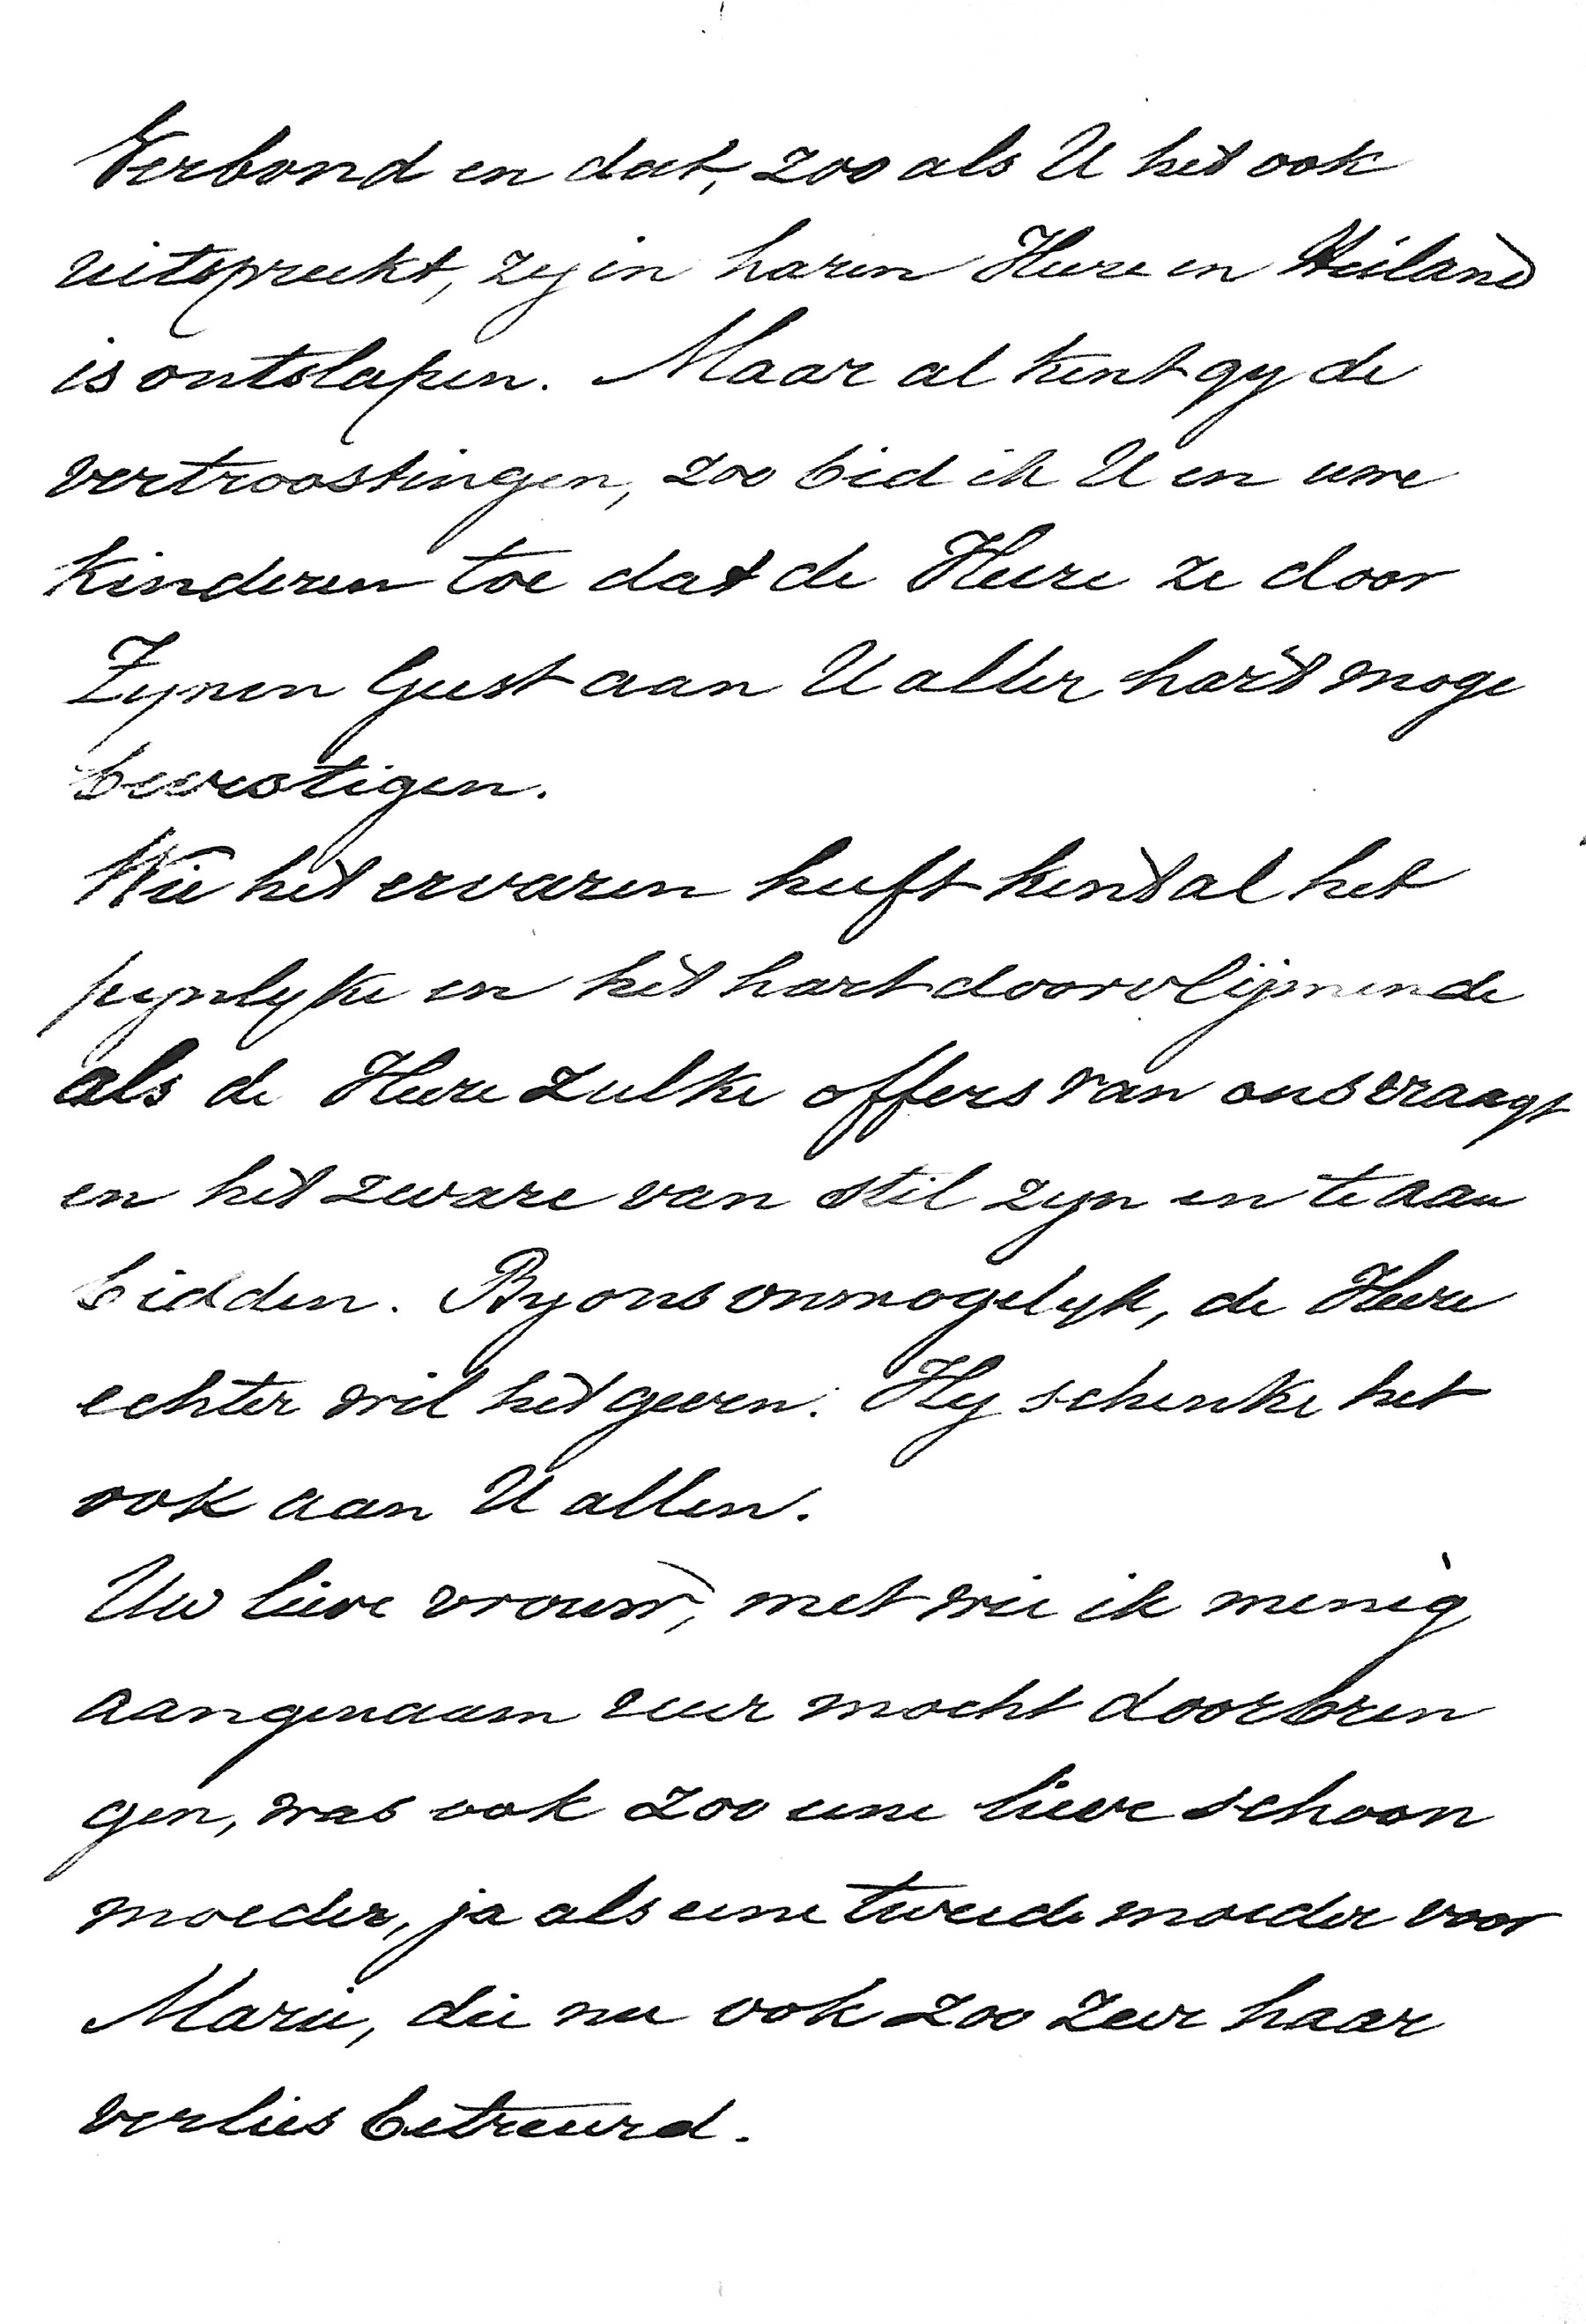 Verbond en dat, zoo als U het ook
uitspreekt, zy in haren Heere en Heiland
is ontslapen. Maar al kent gy de
vertroostingen, zoo bid ik U en uwe
kinderen toe dat de Heere ze door
Zynen Geest aan U aller hart moge
bevestigen.
Wie het ervaren heeft kent al het
pynlyke en het hart doorvlijmende
als de Heere zulke offers van ons vraagt
en het zware van stil zyn en te aan
bidden. By ons onmogelyk, de Heere
echter wil het geven. Hy schenke het
ook aan U allen.
Uw lieve vrouw, met wie ik menig
aangenaam uur mocht doorbren
gen, was ook zoo eene lieve schoon
moeder, ja als eene tweede moeder voor
Marie, die nu ook zoo zeer haar
verlies betreurd.